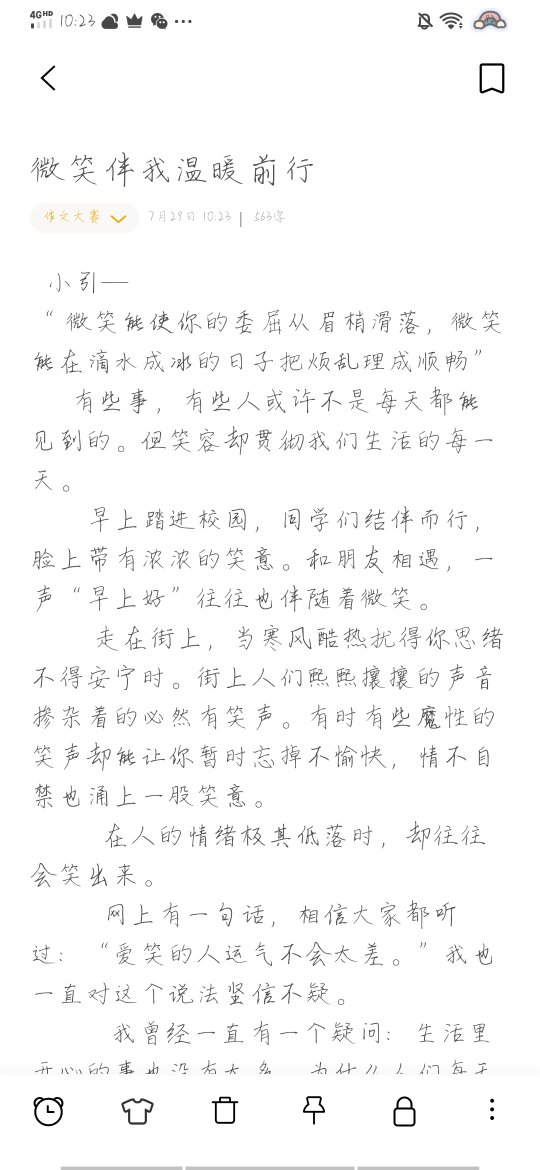 4G HD 10:23
微笑伴我温暖前行
作文大赛 7月29日 10:23 | 563字
小引——
“微笑能使你的委屈从眉梢滑落，微笑
能在滴水成冰的日子把烦乱理成顺畅”
有些事，有些人或许不是每天都能
见到的。但笑容却贯彻我们生活的每一
天。
早上踏进校园，同学们结伴而行，
脸上带有浓浓的笑意。和朋友相遇，一
声“早上好”往往也伴随着微笑。
走在街上，当寒风酷热扰得你思绪
不得安宁时。街上人们熙熙攘攘的声音
掺杂着的必然有笑声。有时有些魔性的
笑声却能让你暂时忘掉不愉快，情不自
禁也涌上一股笑意。
在人的情绪极其低落时，却往往
会笑出来。
网上有一句话，相信大家都听
过：“爱笑的人运气不会太差。”我也
一直对这个说法坚信不疑。
我曾经一直有一个疑问：生活里
开心的事也没有太多，为什么人们每天